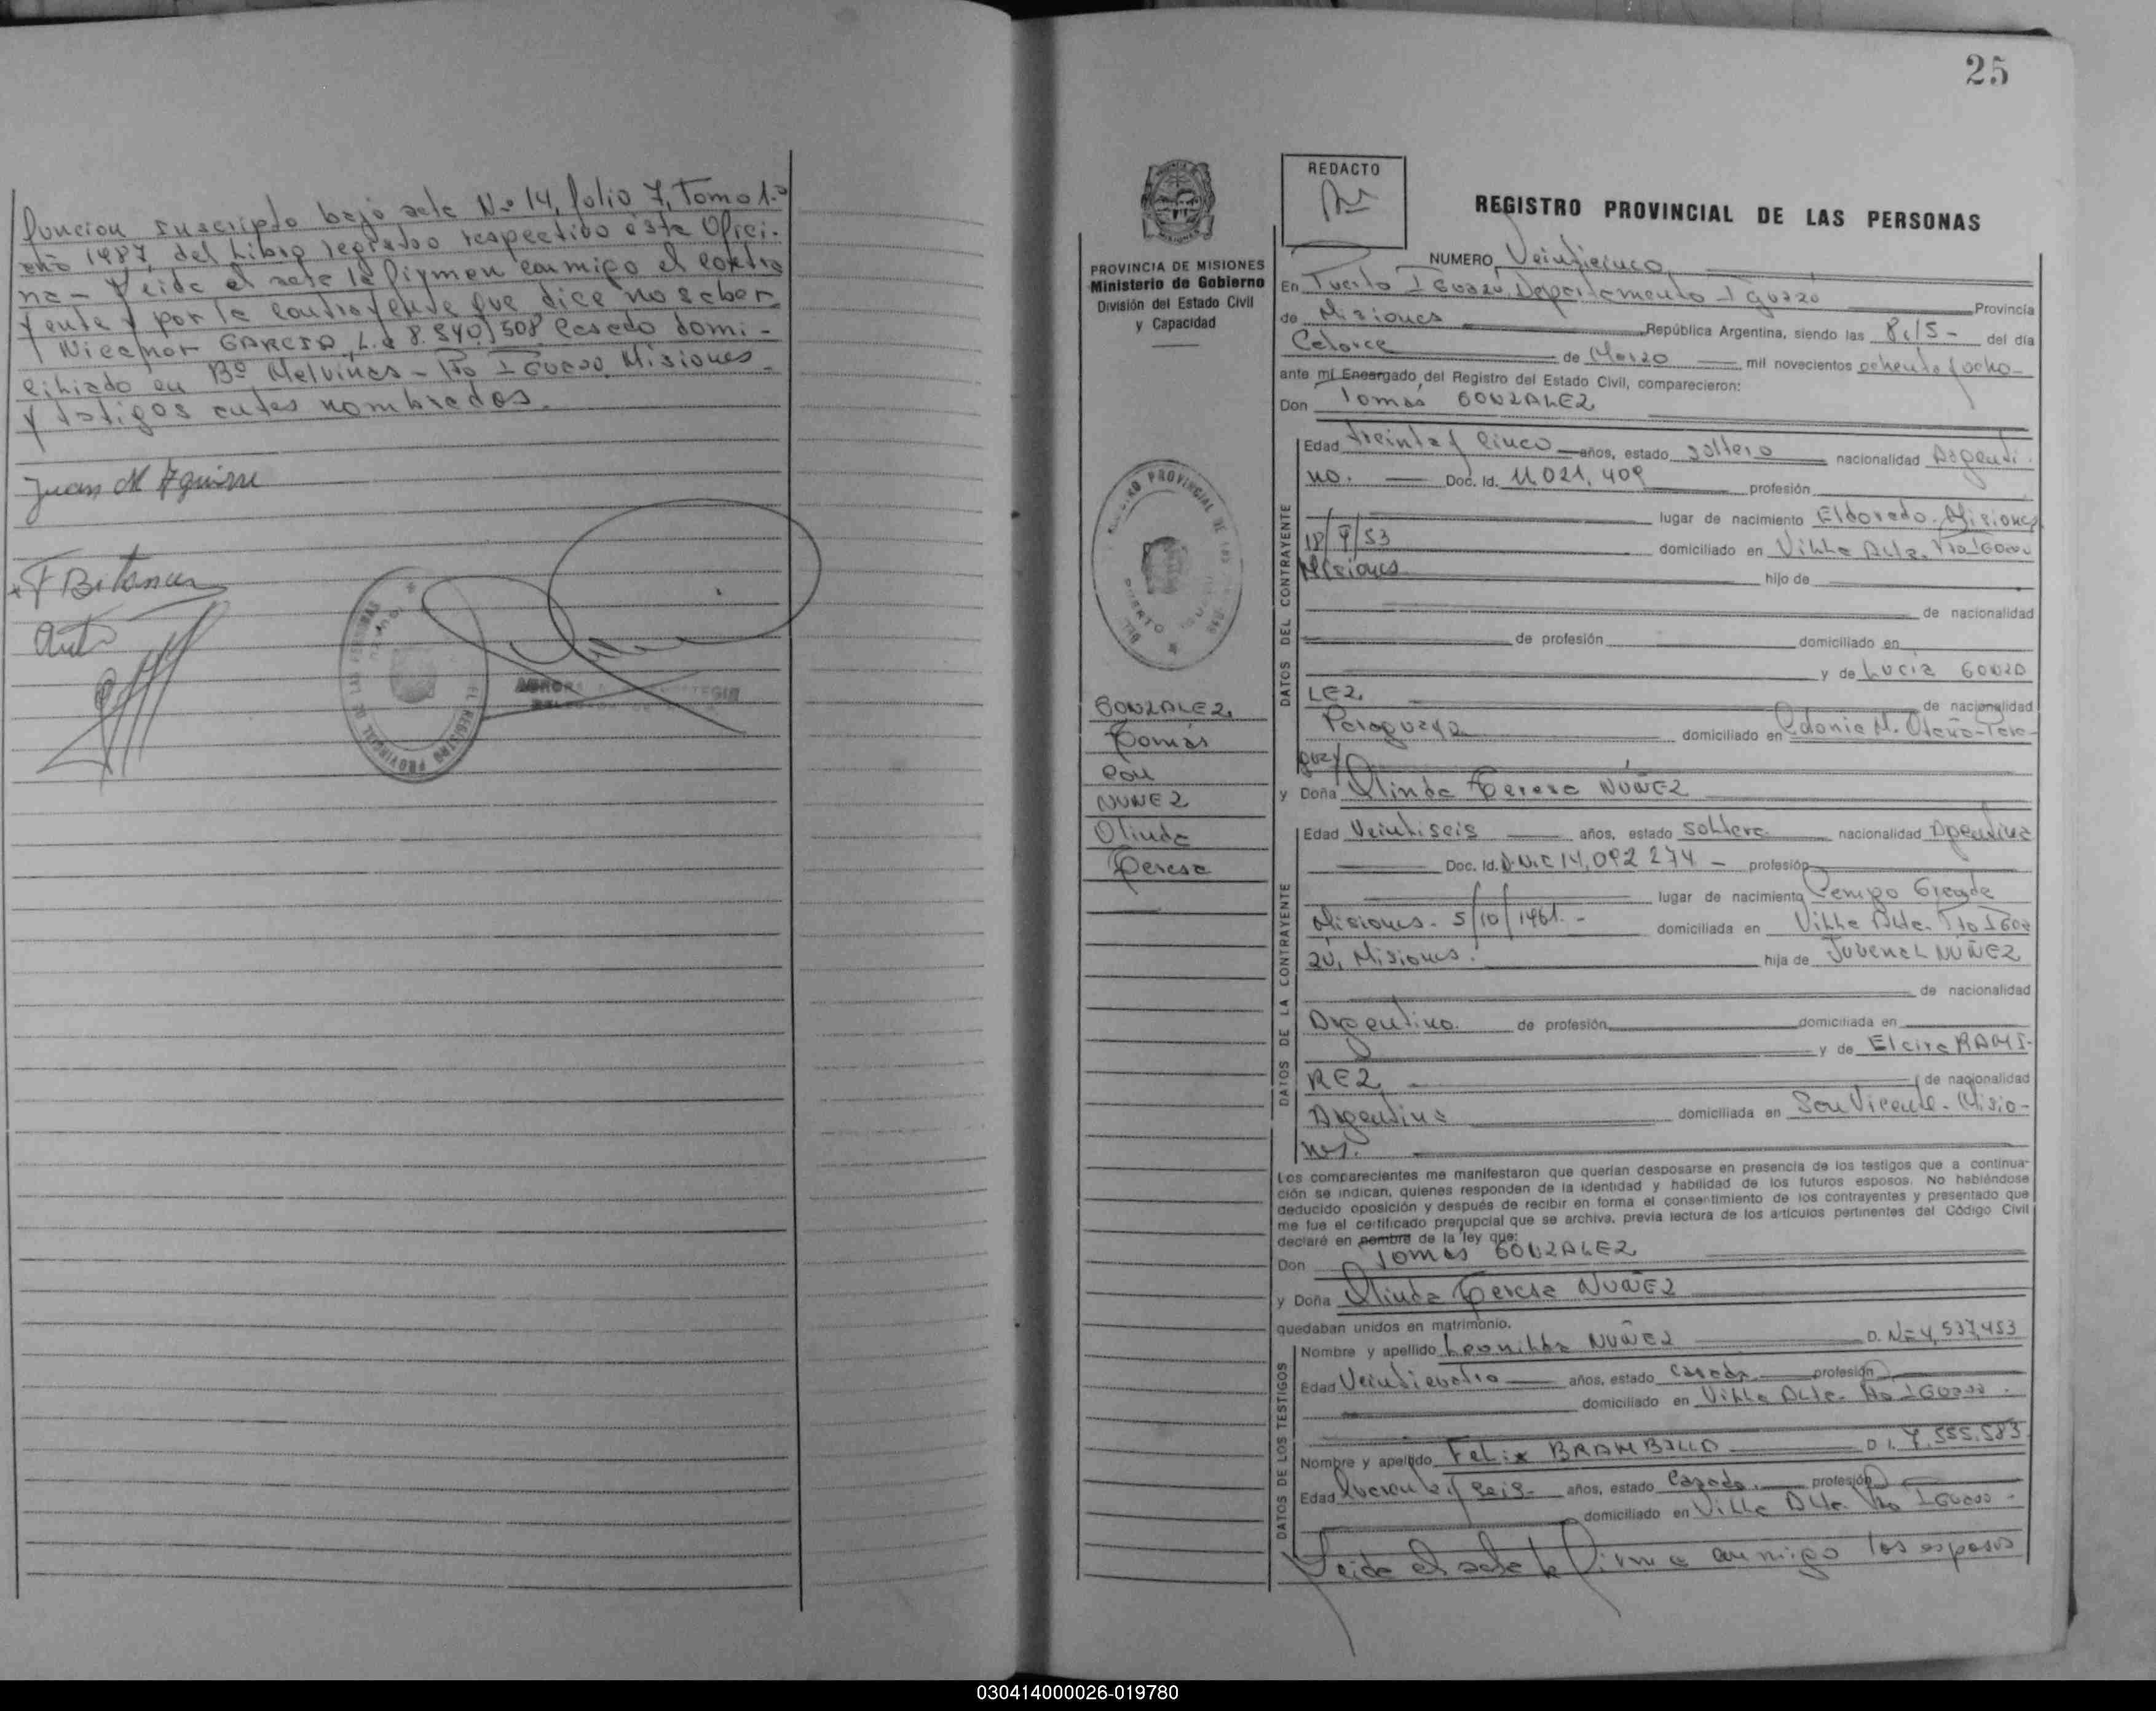 función suscripto bajo acta Nº 14, folio 7, Tomo 1º
año 1987, del Libro registro respectivo ésta Ofici-
na - Leída el acta la firman conmigo el contra
yente y por la contrayente que dice no saber
Nicanor GARCIA, L.E 8.540.508, Casado domi-
ciliado en Bº Malvinas - Pto IGUAZU Misiones
y testigos antes nombrados.
Juan M Aguirre
25
REDACTO
REGISTRO PROVINCIAL DE LAS PERSONAS
PROVINCIA DE MISIONES
Ministerio de Gobierno
División del Estado Civil
y Capacidad
GONZALEZ,
Tomás
con
NUÑEZ
Olinda
Teresa
NUMERO Veinticinco
En Puerto IGuazú, Departamento Iguazú Provincia
de Misiones República Argentina, siendo las 8,15- del día
Catorce de Marzo mil novecientos ochenta y ocho-
ante mí Encargado del Registro del Estado Civil, comparecieron:
Don Tomás GONZALEZ
DATOS DEL CONTRAYENTE
Edad treinta y cinco años, estado soltero nacionalidad Argenti-
no. Doc. Id. 11.021.409 profesión
lugar de nacimiento Eldorado. Misiones
domiciliado en Villa Alta. Pto IGuazú
Misiones hijo de
de nacionalidad
de profesión domiciliado en
y de Lucia GONZA
LEZ, de nacionalidad
Paraguaya domiciliado en Colonia M. Otaño-Para-
guay
y Doña Olinda Teresa NUÑEZ
DATOS DE LA CONTRAYENTE
Edad Veintiseis años, estado soltera nacionalidad Argentina
Doc. Id. D.N.I 14,092 274 - profesión
lugar de nacimiento Campo Grande
Misiones. 5/10/1961. - domiciliada en Villa Alta. Pto IGua
zú, Misiones. hija de Juvenal NUÑEZ
de nacionalidad
Argentino. de profesión domiciliada en
y de Elcira RAMI-
REZ, de nacionalidad
Argentina domiciliada en San Vicente - Misio-
nes.
Los comparecientes me manifestaron que querían desposarse en presencia de los testigos que a continua-
ción se indican, quienes responden de la identidad y habilidad de los futuros esposos. No habiéndose
deducido oposición y después de recibir en forma el consentimiento de los contrayentes y presentado que
me fue el certificado prenupcial que se archiva, previa lectura de los artículos pertinentes del Código Civil
declaré en nombre de la ley que:
Don Tomás GONZALEZ
y Doña Olinda Teresa NUÑEZ
quedaban unidos en matrimonio.
DATOS DE LOS TESTIGOS
Nombre y apellido Leonilda NUÑEZ
Edad Veinticuatro años, estado casada profesión
domiciliado en Villa Alta. Pto IGuazú.
Nombre y apellido Felix BRAMBILLA D I. 7.555.583
Edad cuarenta y seis- años, estado Casado. profesión
domiciliado en Villa Alta. Pto IGuazú -
Leída el acta la firma conmigo los esposos
030414000026-019780